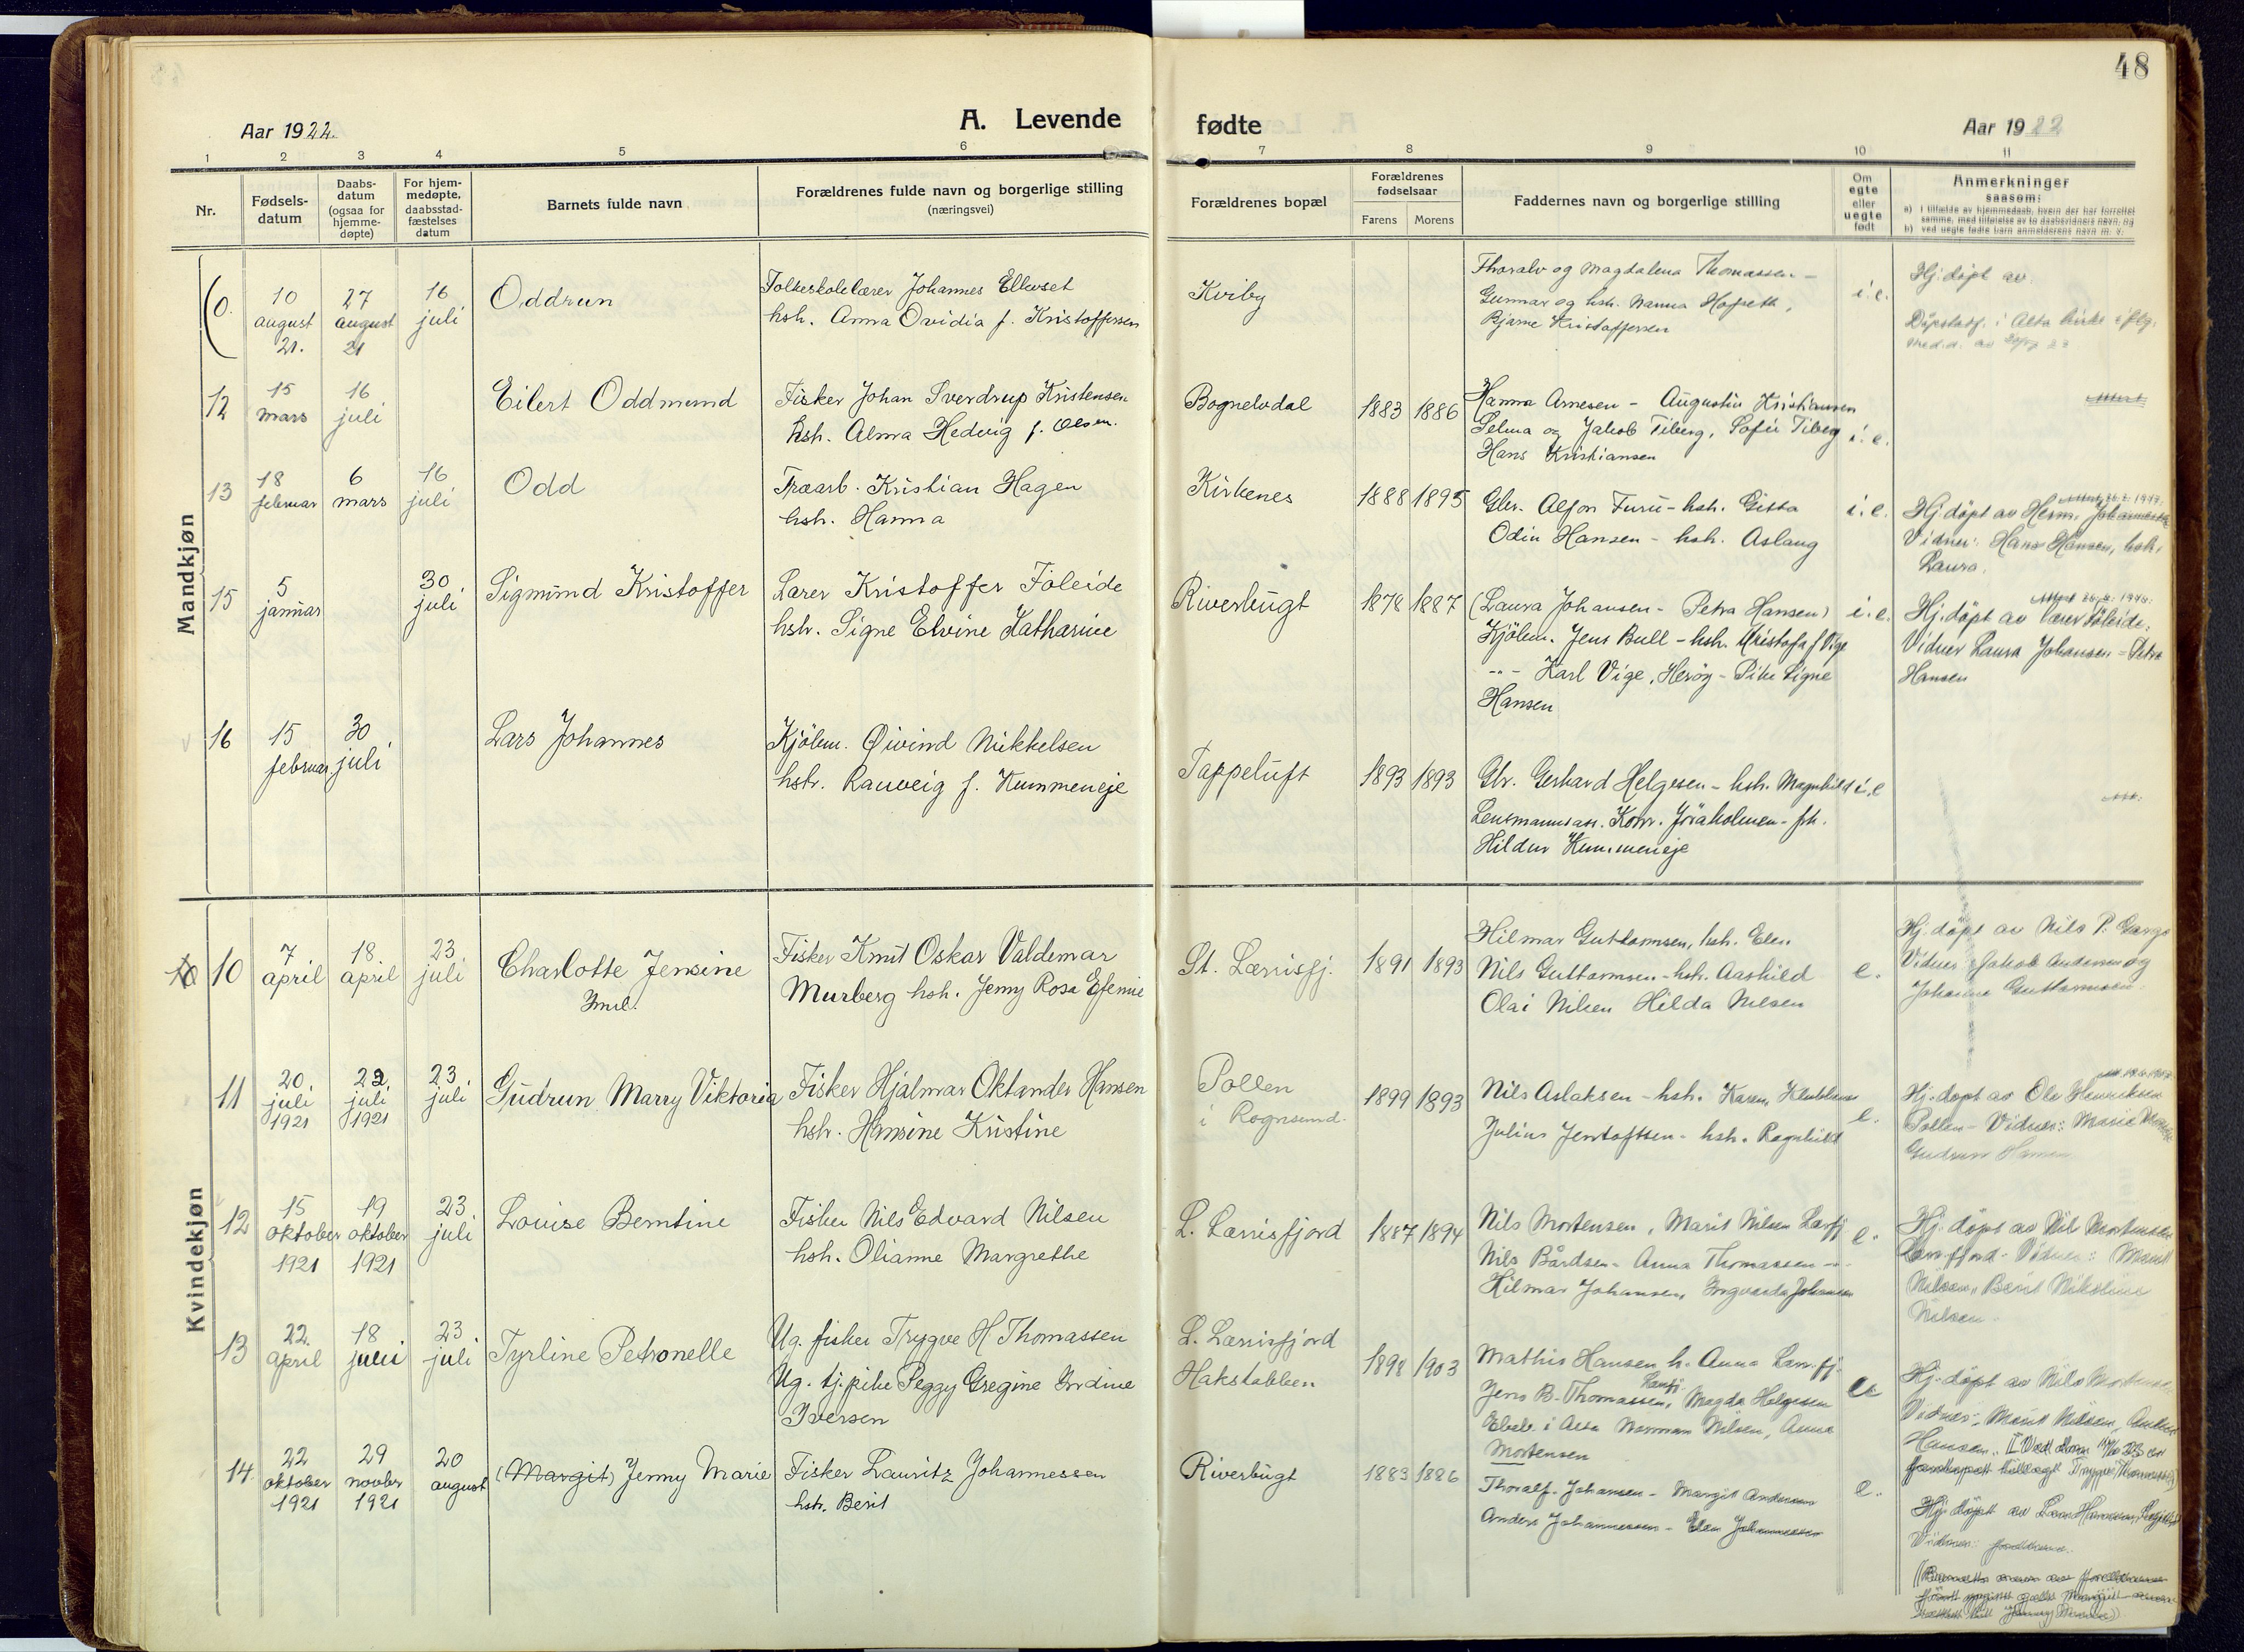 48
Aar 1922.
A. Levende
fødte
Aar 1922
1 2 3 4 5 6 7 8 9 10 11
Nr.
Fødsels-
datum
Daabs-
datum
(ogsaa for
hjemme-
døpte)
For hjem-
medøpte,
daabsstad-
fæstelses
datum
Barnets fulde navn
Forældrenes fulde navn og borgerlige stilling
(næringsvei)
Forældrenes bopæl
Forældrenes
fødselsaar
Farens Morens
Faddernes navn og borgerlige stilling
Om
egte
eller
uegte
født
Anmerkninger
saasom:
a) i tilfælde av hjemmedaab, hvem der har forrettet
samme, med tilføielse av to daabsvidners navn, og
b) ved uegte fødte barn anmelderens navn m. v.
Mandkjøn
(0.
10
august
21.
27
august
21
16
juli
Oddrun
Folkeskolelærer Johannes Elleuset
hsh. Anna Ovidia f. Kristoffersen
Kviby
Thoralv og Magdalena Thomassen –
Gunnar og hsh. Nanna Hofseth,
Bjarne Kristoffersen
i.e.
Hj.døpt av
Døpstadf. i Alta kirke iflg.
12
15
mars
16
juli
Eilert Oddmund
Fisker Johan Sverdrup Kristensen
hsh. Alma Hedvig f. Olsen.
Bognelvdal
1883 1886
Hanna Arnesen – Augustin Kristiansen
Selma og Jakob Tiberg, Sofie Tiberg
Hans Kristiansen
i.e.
13
18
februar
6
mars
16
juli
Odd
Træarb. Kristian Hagen
hsh. Hanna
Kirkenes
1888 1895
Gbr. Alfon Furu – hsh. Gitta
Odin Hansen – hsh. Aslaug
i.e.
Hj.døpt av Herm. Johannessen
Vidner: Hans Hansen, hsh.
Laura.
15
5
januar
30
juli
Sigmund Kristoffer
Lærer Kristoffer Foleide
hsh. Signe Elvine Katharine
Riverbugt
1878 1887
(Laura Johansen – Petra Hansen)
Kjølem. Jens Bull – hsh. Kristofa f Vige
–"– Karl Vige, Herøy – Pike Signe
Hansen
i.e.
Hj.døpt av lærer Foleide.
Vidner Laura Johansen – Petra
Hansen
16
15
februar
30
juli
Lars Johannes
Kjølem. Øivind Mikkelsen
hsh. Rauveig f. Kummeneje
Tappeluft
1893 1893
Gbr. Gerhard Helgesen – hsh. Magnhild
Lensmannsass. Konr. Jøraholmen – frk.
Hildur Kummeneje
i.e
Kvindekjøn
10
10
7
april
18
april
23
juli
Charlotte Jensine
Fisker Knut Oskar Valdemar
Murberg hsh. Jenny Rosa Efenie
St. Lærrisfj.
1891 1893
Hilmar Guttormsen, hsh. Elen
Nils Guttormsen – hsh. Aashild
Olai Nilsen Hilda Nilsen
e.
Hj.døpt av Nils P. Gargo
Vidner: Jakob Andersen og
Johanne Guttormsen.
11
20
juli
1921
22
juli
1921
23
juli
Gudrun Marry Viktoria
Fisker Hjalmar Oktander Hansen
hsh. Hansine Kristine
Pollen
i Rognsund.
1899 1893
Nils Aslaksen – hsh. Karen
Julius Jentoftsen – hsh. Ragnhild
e.
Hj.døpt av Ole Henriksen
Pollen – Vidner: Marie
Gudrun Hansen
12
15
oktober
1921
19
oktober
1921
23
juli
Louise Berntine
Fisker Nils Edvard Nilsen
hsh. Olianne Margrethe
L. Lærrisfjord
1887 1894
Nils Mortensen, Marit Nilsen Lærfj
Nils Bårdsen – Anna Thomassen –"–
Hilmar Johansen, Ingvarda Johansen
e.
Hj.døpt av Nils Mortensen
Lærrisfjord. Vidner: Marit
Nilsen, Berit Nikoline
Nilsen.
13
22.
april
18
juli
23
juli
Tyrline Petronelle
Ug. fisker Trygve H Thomassen
Ug. tj.pike Peggy Gregine Jordine
Iversen
L. Lærrisfjord
Hakstabben
1898 1903
Mathis Hansen h. Anna Lær.fj.
Jens B. Thomassen, Magda Helgesen
Elveb. i Alta Norman Nilsen, Anna
Mortensen
Hj.døpt av Nils Mortensen
Vidner: Marit Nilsen,
Hansen.
14
22
oktober
1921
29
novbr
1921
20
august
(Margit) Jenny Marie
Fisker Lauritz Johannessen
hsh. Berit
Riverbugt
1883 1886
Thoralf. Johansen – Margit Andersen
Anders Johannessen – Elen Johannessen
e.
Hj.døpt av Lars Hansen,
Vidner: forældrene.